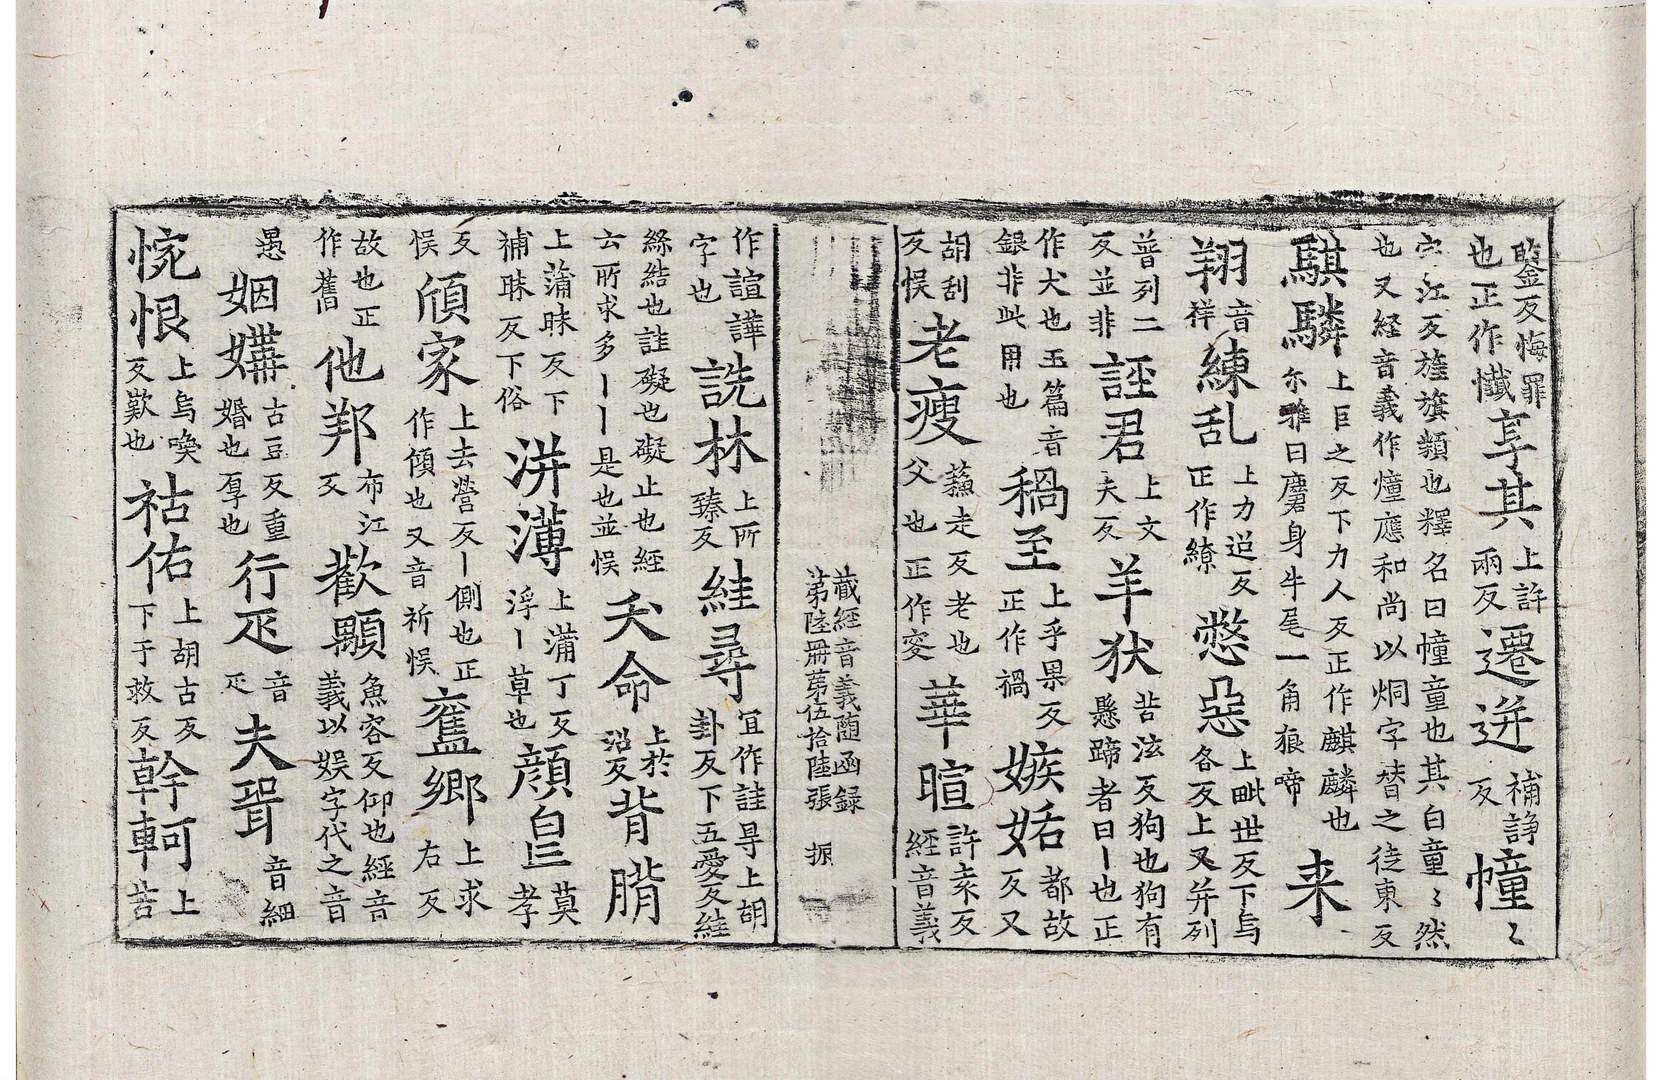 鑒反悔罪也正作懺享其上許兩反遷迸補諍反幢〻
宅江反旌旗類也釋名曰幢童也其白童〻然也又経音義作㠉應和尚以炯字替之徒東反
騏驎上巨之反下力人反正作麒麟也尔雅曰麐身牛尾一角狼啼来
翔音祥練乱上力迢反正作繚憋惡上毗世反下烏各反上又并列
普列二反並非誣君上文夫反羊狄苦泫反狗也狗有懸蹄者曰丨也正
作犬也玉篇音銀非此用也䅥至上乎果反正作禍嫉妬都故反又
胡刮反悮老瘦蘓走反老也父也正作叜華暄許袁反經音義
藏經音義随函録
第陸冊第伍拾陸張 振
作諠譁字也詵林上所臻反絓㝷宜作詿㝷上胡卦反下五愛反絓
絲結也詿礙也礙止也經云所求多丨丨是也並悮夭命上於沼反背
上蒲昧反下補昧反下俗洴薄上蒲丁反浮丨草也顔莫孝
反悮頎家上去營反丨側也正作傾也又音祈悮鄉上求右反
故也正作舊他邦布江反歡顒魚容反仰也經音義以娛字代之音
愚姻媾古豆反重婚也厚也行疋音疋夫壻音細
惋恨上烏喚反歎也祜佑上胡古反下于救反幹軻上苦